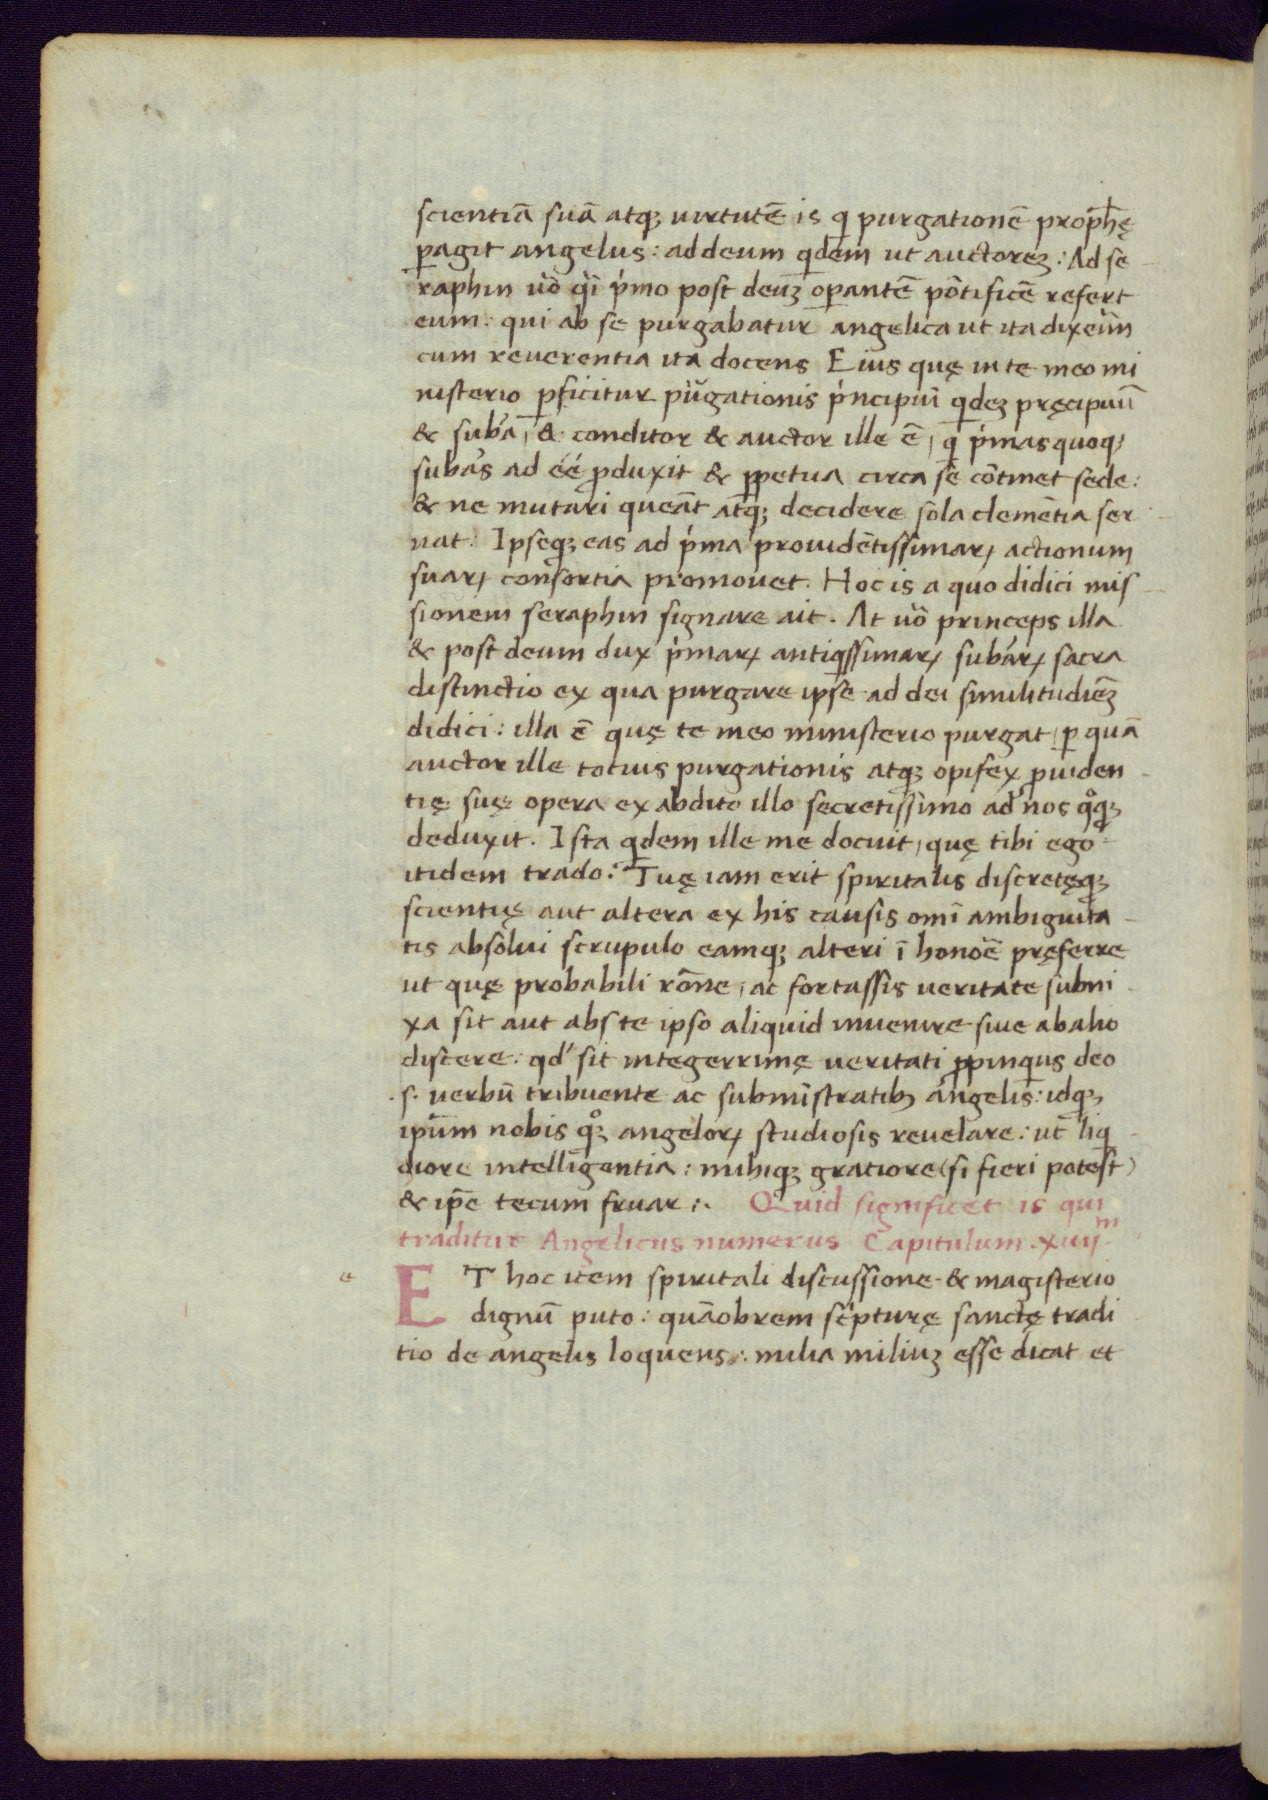 scientiā suā atqꝫ uirtutē is q purgationē prophę
ꝑagit angelus: ad deum qdem ut auctoreꝫ: Ad se
raphin uo᷑ qi p᷑mo post deuꝫ oꝑantē pōtificē refert
eum: qui ab se purgabatur angelica ut ita dixeim
cum reuerentia ita docens Eius quę in te meo mi
nisterio ꝑficitur purgationis p᷑ncipiū qdeꝫ pręcipuū
& suba᷑, & conditor & auctor ille ē, q p᷑mas quoqꝫ
suba᷑s ad éé ꝓduxit & ꝑpetua circa se cōtinet sede:
& ne mutari queāt atqꝫ decidere sola clemētia ser
uat: Ipseqꝫ eas ad p᷑ma prouidētissimaꝝ actionum
suaꝝ consortia promouet. Hoc is a quo didici mis
sionem seraphin signare ait. At uo᷑ princeps illa
& post deum dux p᷑maꝝ antiqssimaꝝ suba᷑ꝝ sacra
distinctio ex qua purgare ipse ad dei similitudieꝫ
didici: illa ē quę te meo ministerio purgat, ꝑ quā
auctor ille totius purgationis atqꝫ opifex ꝓuiden
tię suę opera ex abdito illo secretissimo ad nos qͦqꝫ
deduxit. Ista qdem ille me docuit, quę tibi ego
itidem trado: Tuę iam erit spiritalis discretęqꝫ
scientię aut altera ex his causis omī ambiguita
tis absolui scrupulo eamqꝫ alteri ī honoē pręferre
ut quę probabili rōne, ac fortassis ueritate subni
xa sit aut abs te ipso aliquid inuenire siue ab alio
discere: qd' sit integerrimę ueritati ꝓpinqus deo
.s. uerbū tribuente ac submīstratibꝫ angelis: idqꝫ
ipūm nobis qͦꝫ angeloꝝ studiosis reuelare: ut liq
diore intelligentia: mihiqꝫ gratiore (si fieri potest)
& ip̄e tecum fruar:. Quid significet is qui
traditur Angelicus numerus Capitulum .xiiijᵐ.
e ET hoc item spiritali discussione & magisterio
dignū puto: quāobrem sc᷑pturę sanctę tradi
tio de angelis loquens: milia miliuꝫ esse dicat et